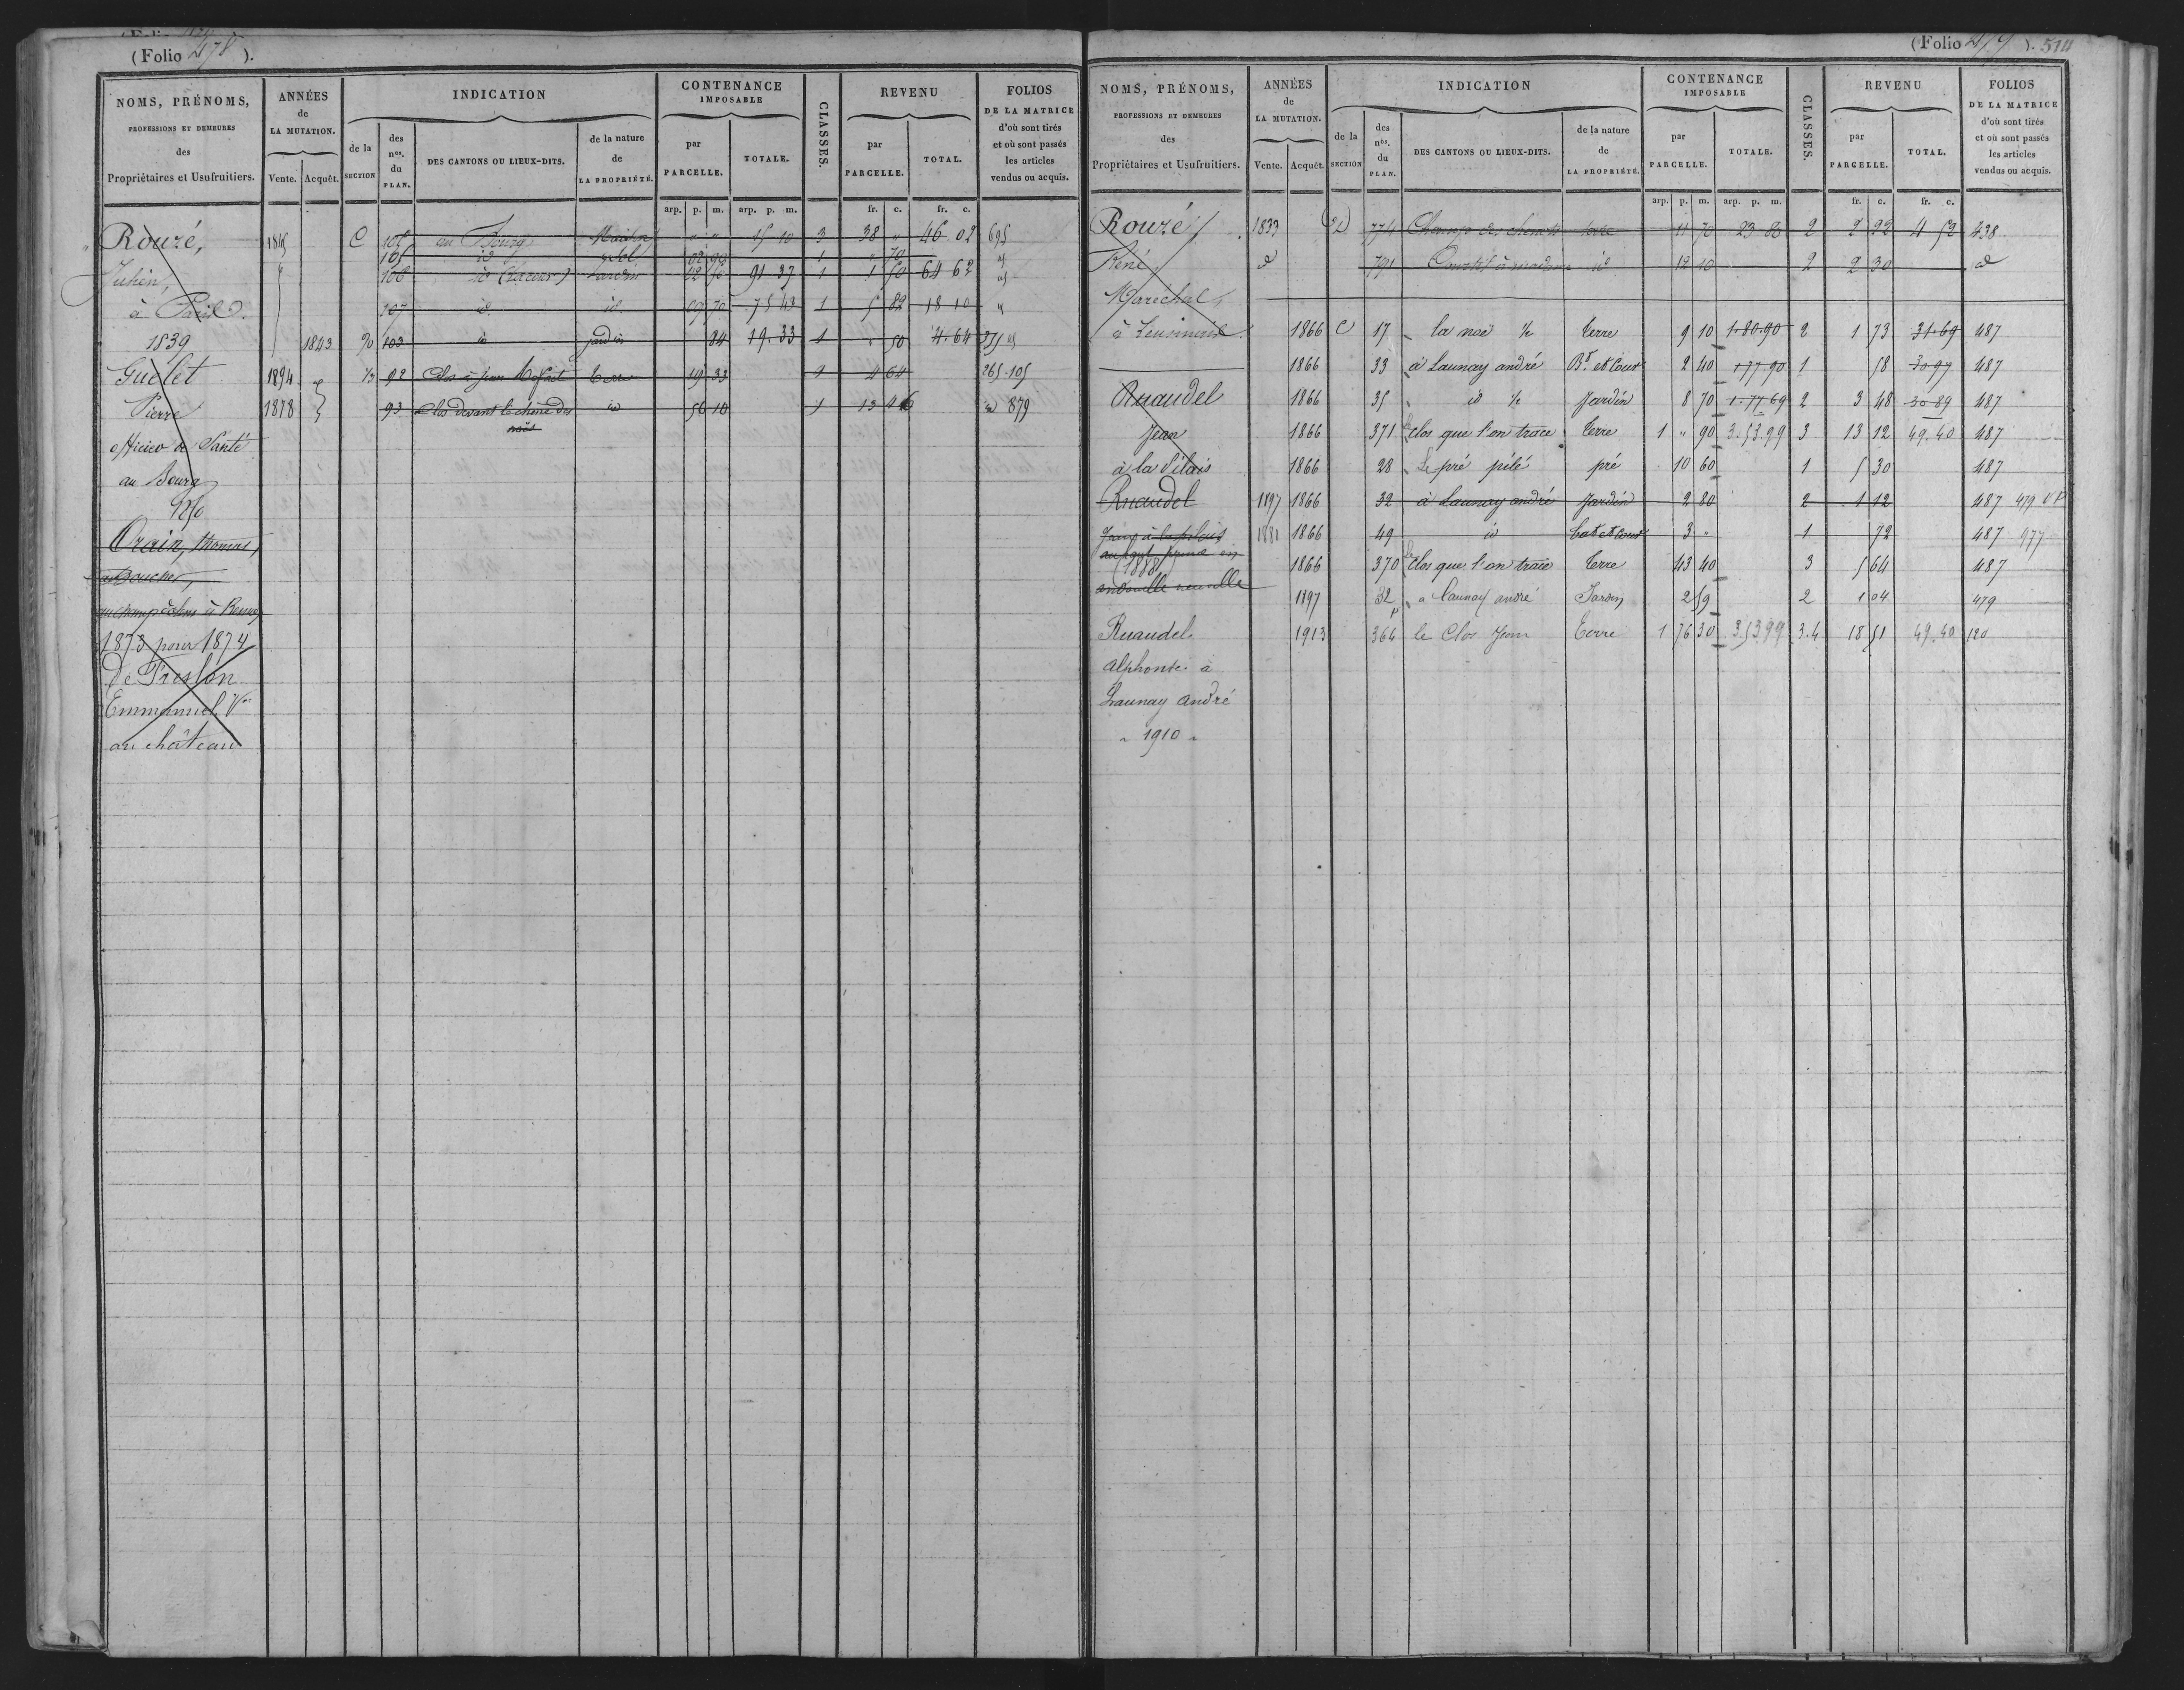 (Folio 478).
NOMS, PRÉNOMS,
PROFESSIONS ET DEMEURES
des
Propriétaires et Usufruitiers.
ANNÉES
de
LA MUTATION.
Vente. Acquêt.
INDICATION
de la
SECTION
des
nos.
du
PLAN.
DES CANTONS OU LIEUX-DITS.
de la nature
de
LA PROPRIÉTÉ.
CONTENANCE
IMPOSABLE
par
PARCELLE.
TOTALE.
CLASSES.
REVENU
par
PARCELLE.
TOTAL.
FOLIOS
DE LA MATRICE
d'où sont tirés
et où sont passés
les articles
vendus ou acquis.
arp. p. m. arp. p. m. fr. c. fr. c.
Rouzé,
Julien,
à Paris.
1839
Guelet
Pierre
officier de Santé
au Bourg
1250
Orain, thomas,
Boucher,
à Rennes
1873 pour 1874
De Freslon
Emmanuel Vte
au château
1845 C 105 au Bourg Maison " " 15 10 3 38 " 46 02 695
105 id Sol 02 90 1 " 70 id
108 id (la cour) Jardin 02 50 91 37 1 1 50 64 62 id
107 id. id. 09 70 75 43 1 5 82 18 10 "
1843 103 id jardin 84 19.33 1 " 50 4.64 375
1894 92 Clos à Jean Terre 19 33 2 4 64 265-105
1878 93 Clos devant le chêne des id 56 10 1 13 46 id 879
noës
(Folio 479). 514
NOMS, PRÉNOMS,
PROFESSIONS ET DEMEURES
des
Propriétaires et Usufruitiers.
ANNÉES
de
LA MUTATION.
Vente. Acquêt.
INDICATION
de la
SECTION
des
nos.
du
PLAN.
DES CANTONS OU LIEUX-DITS.
de la nature
de
LA PROPRIÉTÉ.
CONTENANCE
IMPOSABLE
par
PARCELLE.
TOTALE.
CLASSES.
REVENU
par
PARCELLE.
TOTAL.
FOLIOS
DE LA MATRICE
d'où sont tirés
et où sont passés
les articles
vendus ou acquis.
arp. p. m. arp. p. m. fr. c. fr. c.
Rouzé
René,
Maréchal,
Ruaudel
Jean
à la Pilais
Ruaudel
Jean à la pilais
(1888)
andouillé neuville
Ruaudel
Alphonse à
Launay André
" 1910 "
1833 D 774 Champ de terre 11 70 23 80 2 2 22 4 52 438
d 791 Courtil à id 12 10 2 2 30 d
1866 C 17 la noë Terre 9 10 1.80.90 2 1 73 31.69 487
1866 33 à Launay andré Bt et Cour 2 40 1 77 90 1 58 30 97 487
1866 35 id Jardin 8 70 1.77 69 2 3 48 30 89 487
1866 371 Le clos que l'on trace Terre 1 " 90 3.53.99 3 13 12 49.40 487
1866 28 Le pré pilé pré 10 60 1 5 30 487
1897 1866 32 à Launay andré Jardin 2 80 2 1 12 487 479
1881 1866 49 id bat et cour 3 " 1 72 487 977
1866 370 Le clos que l'on trace Terre 43 40 3 5 64 487
1897 32 p à Launay andré Jardin 2 59 2 1 04 479
1913 366 le Clos Jean Terre 1 76 30 3.53.99 3.4 18 51 49.40 120